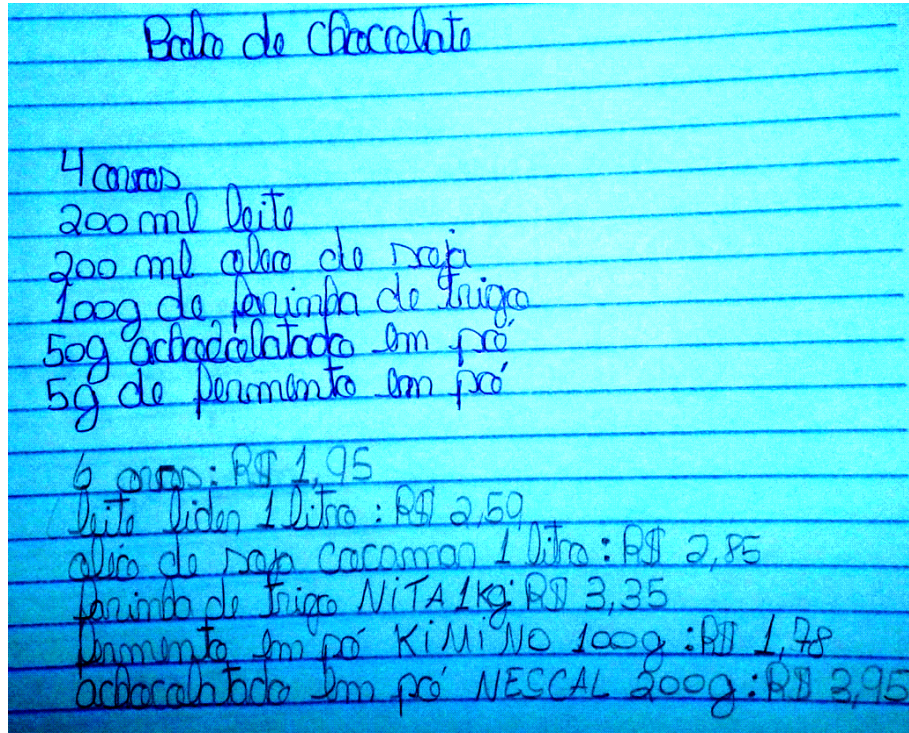 Bolo de chocolate
4 ovos
200 ml leite
200 ml oleo de soja
100g de farinha de trigo
50g achocolatado em pó
5g de fermento em pó
6 ovos: R$ 1,95
leite lider 1 litro: R$ 2,50
oleo de soja cocamar 1 litro: R$ 2,85
farinha de trigo NiTA 1kg: R$ 3,35
fermento em pó KiMiNO 100g: R$ 1,78
achocolatado em pó NESCAL 200g: R$ 3,95